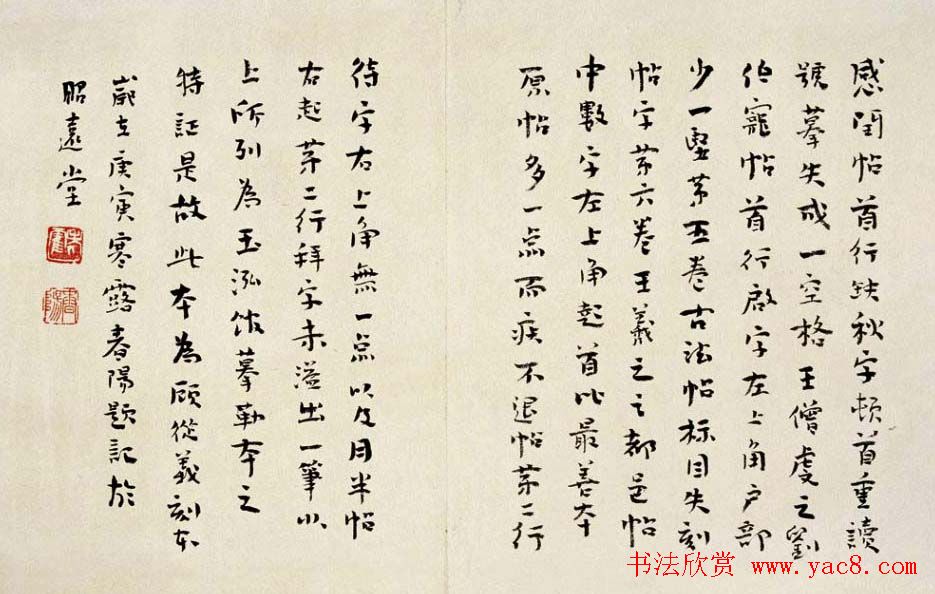 感閏帖首行缺秋字頓首重讀
號摹失成一空格王僧虔之劉
伯寵帖首行啟字左上角户部
少一竪苐五卷古法帖标目失刻
帖字苐六卷王羲之之都邑帖
中數字左上角起首比最善本
原帖多一点而疾不退帖苐二行
待字右上角無一点以及月半帖
右起苐二行拜字未溢出一筆以
上所列為玉泓館摹勒本之
特証是故此本為顾從義刻本
歲在庚寅寒露春陽题記於
昭遠堂
书法欣赏
www.yac8.com